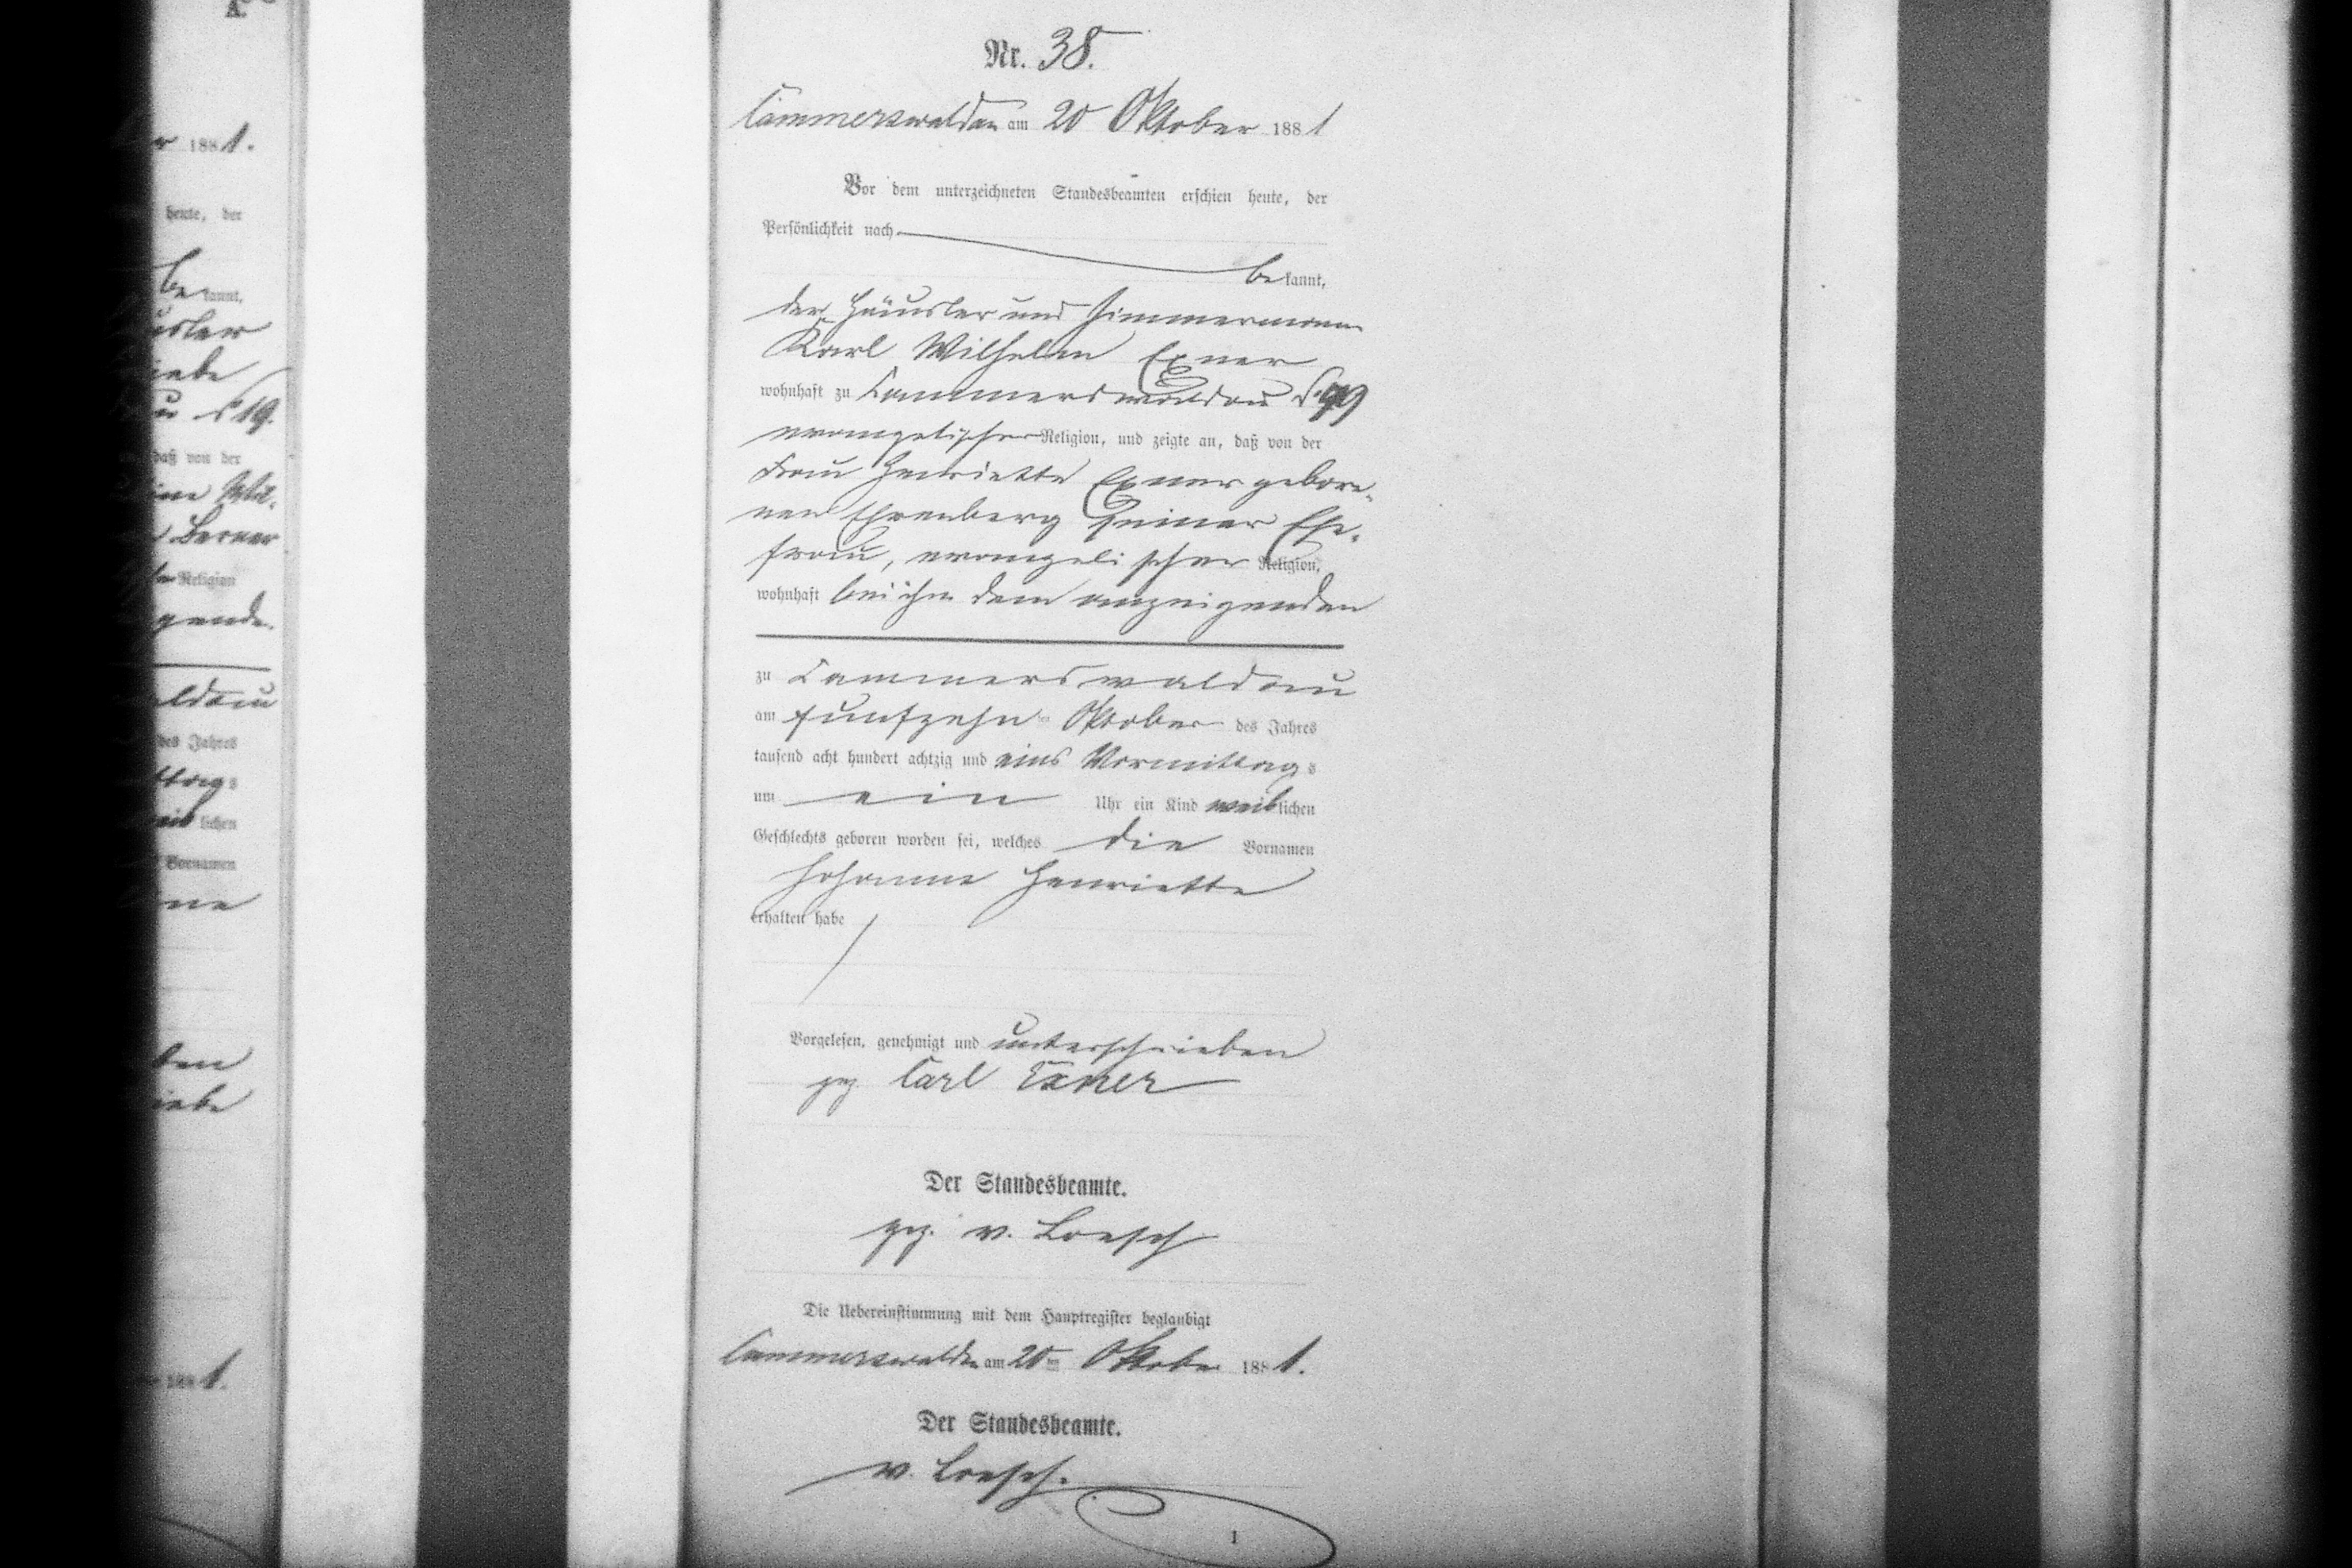 Nr. 38.
Cammerswaldau am 20 Oktober 1881
Vor dem unterzeichneten Standesbeamten erschien heute, der
Persönlichkeit nach
bekannt,
der Häusler und Zimmermann
Karl Wilhelm Exner
wohnhaft zu Cammerswaldau
evangelischer Religion, und zeigte an, daß von der
Frau Henriette Exner gebore-
nen Ehrenberg seiner Ehe-
frau, evangelischer Religion,
wohnhaft bei ihm dem anzeigenden
zu Cammerswaldau
am funfzehnten Oktober des Jahres
tausend acht hundert achtzig und eins Vormittags
um ein Uhr ein Kind weiblichen
Geschlechts geboren worden sei, welches die Vornamen
Johanne Henriette
erhalten habe
Vorgelesen, genehmigt und unterschrieben
gez Carl Exner
Der Standesbeamte.
gez. v. Loesch
Die Uebereinstimmung mit dem Hauptregister beglaubigt
Cammerswaldau am 20ten Oktober 1881.
Der Standesbeamte.
v. Loesch.
1
r 1881.
heute, der
bekannt,
19.
daß von der
Berner
Religion
gende.
aldau
des Jahres
ttags
lichen
Vornamen
ne
ben
1881.